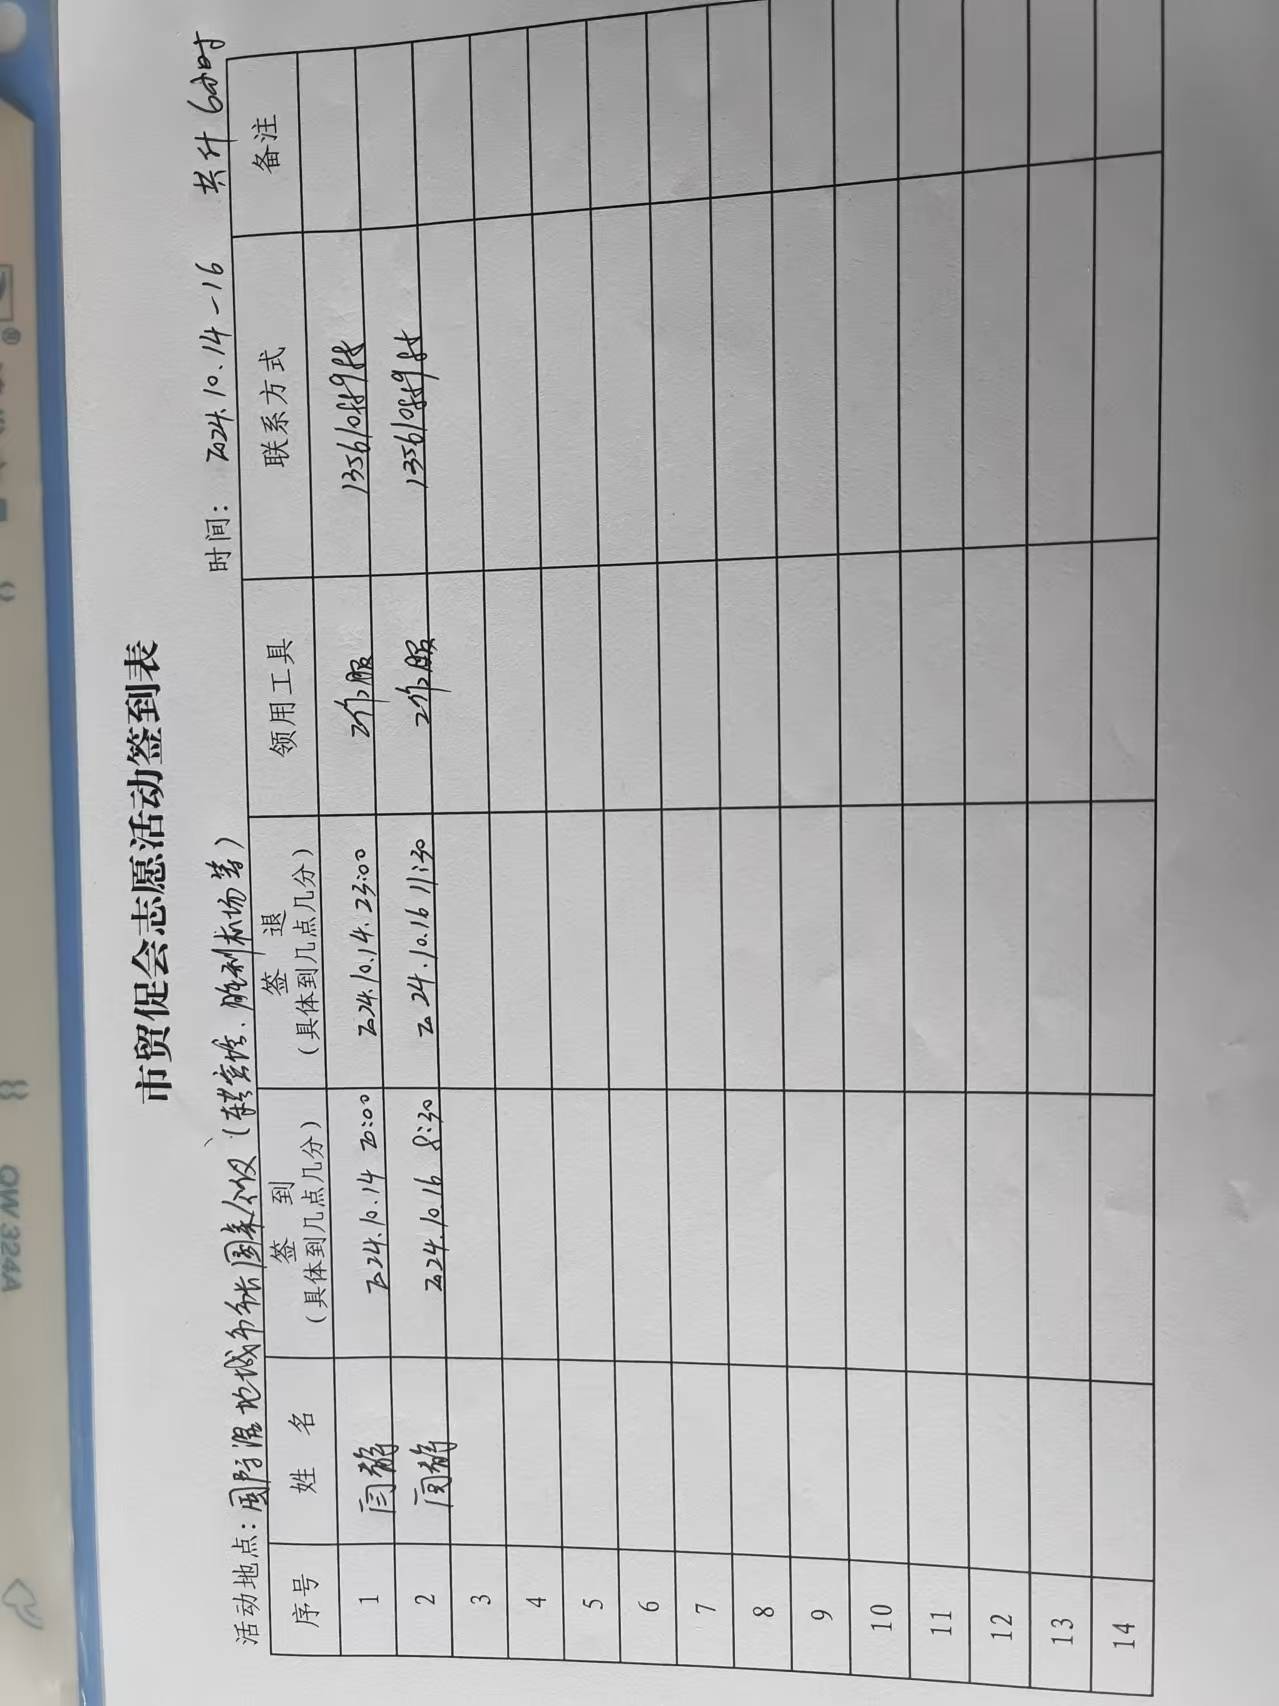 市贸促会志愿活动签到表
活动地点：国际湿地城市圆桌会议（东营宾馆、胜利机场等） 时间：2024.10.14-16 共计6小时
序号 姓名 签到 签退 领用工具 联系方式 备注
（具体到几点几分） （具体到几点几分）
1 闫静 2024.10.14 20:00 2024.10.14. 23:00 工作服
2 闫静 2024.10.16 8:30 2024.10.16 11:30 工作服
3
4
5
6
7
8
9
10
11
12
13
14
QW324A